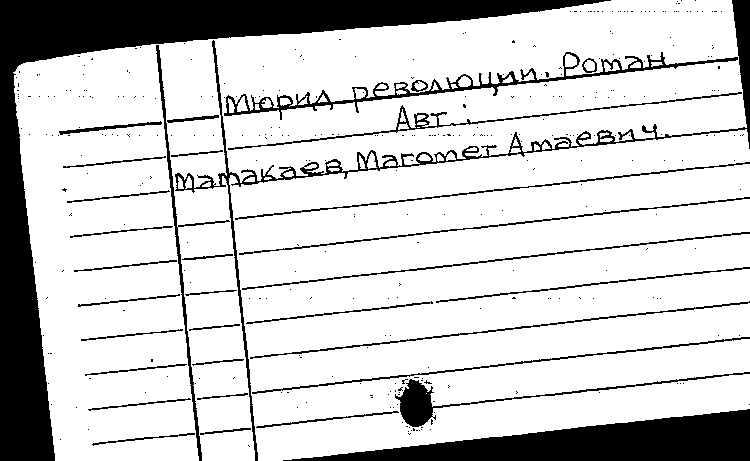 Мюрид революции. Роман.
Авт.:
Мамакаев, Магомет Амаевич.